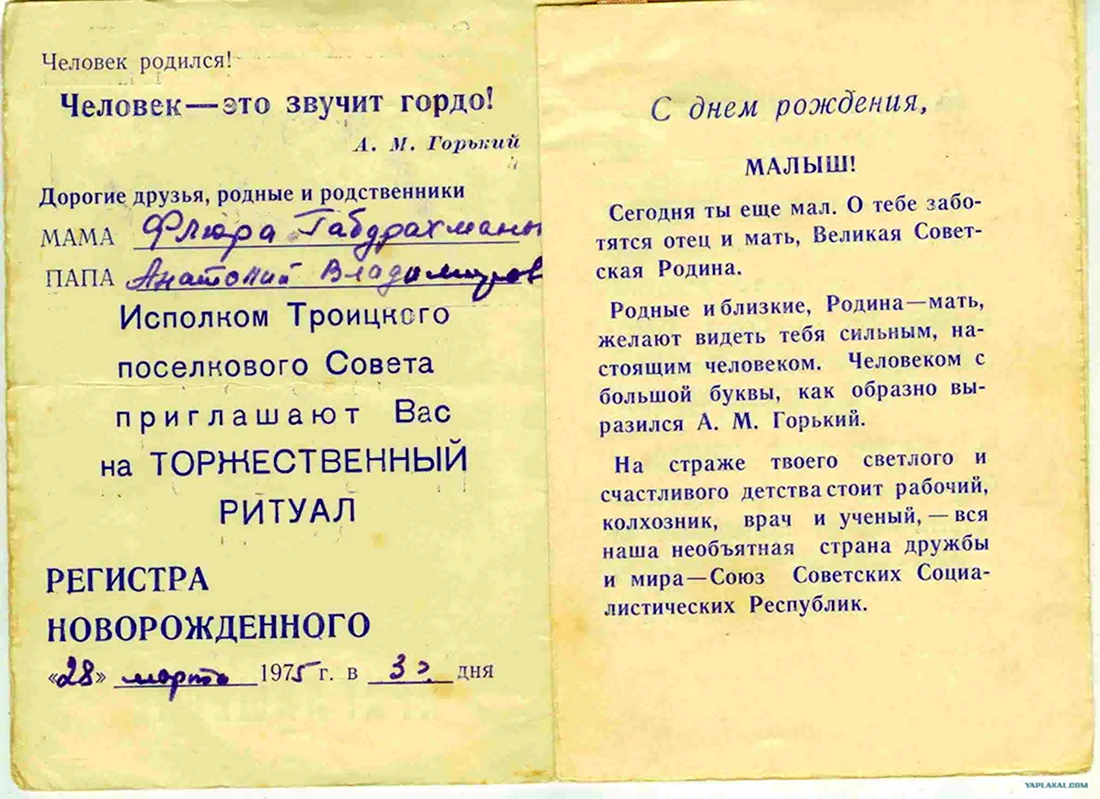 Человек родился!
Человек—это звучит гордо!
А. М. Горький
Дорогие друзья, родные и родственники
МАМА Флюра Габдрахманы
ПАПА Анатолий Владимиров
Исполком Троицкого
поселкового Совета
приглашают Вас
на ТОРЖЕСТВЕННЫЙ
РИТУАЛ
РЕГИСТРА
НОВОРОЖДЕННОГО
«28» марта 1975 г. в 3 ч. дня
С днем рождения,
МАЛЫШ!
Сегодня ты еще мал. О тебе забо-
тятся отец и мать, Великая Совет-
ская Родина.
Родные и близкие, Родина—мать,
желают видеть тебя сильным, на-
стоящим человеком. Человеком с
большой буквы, как образно вы-
разился А. М. Горький.
На страже твоего светлого и
счастливого детства стоит рабочий,
колхозник, врач и ученый,—вся
наша необъятная страна дружбы
и мира—Союз Советских Социа-
листических Республик.
YAPLAKAL.COM